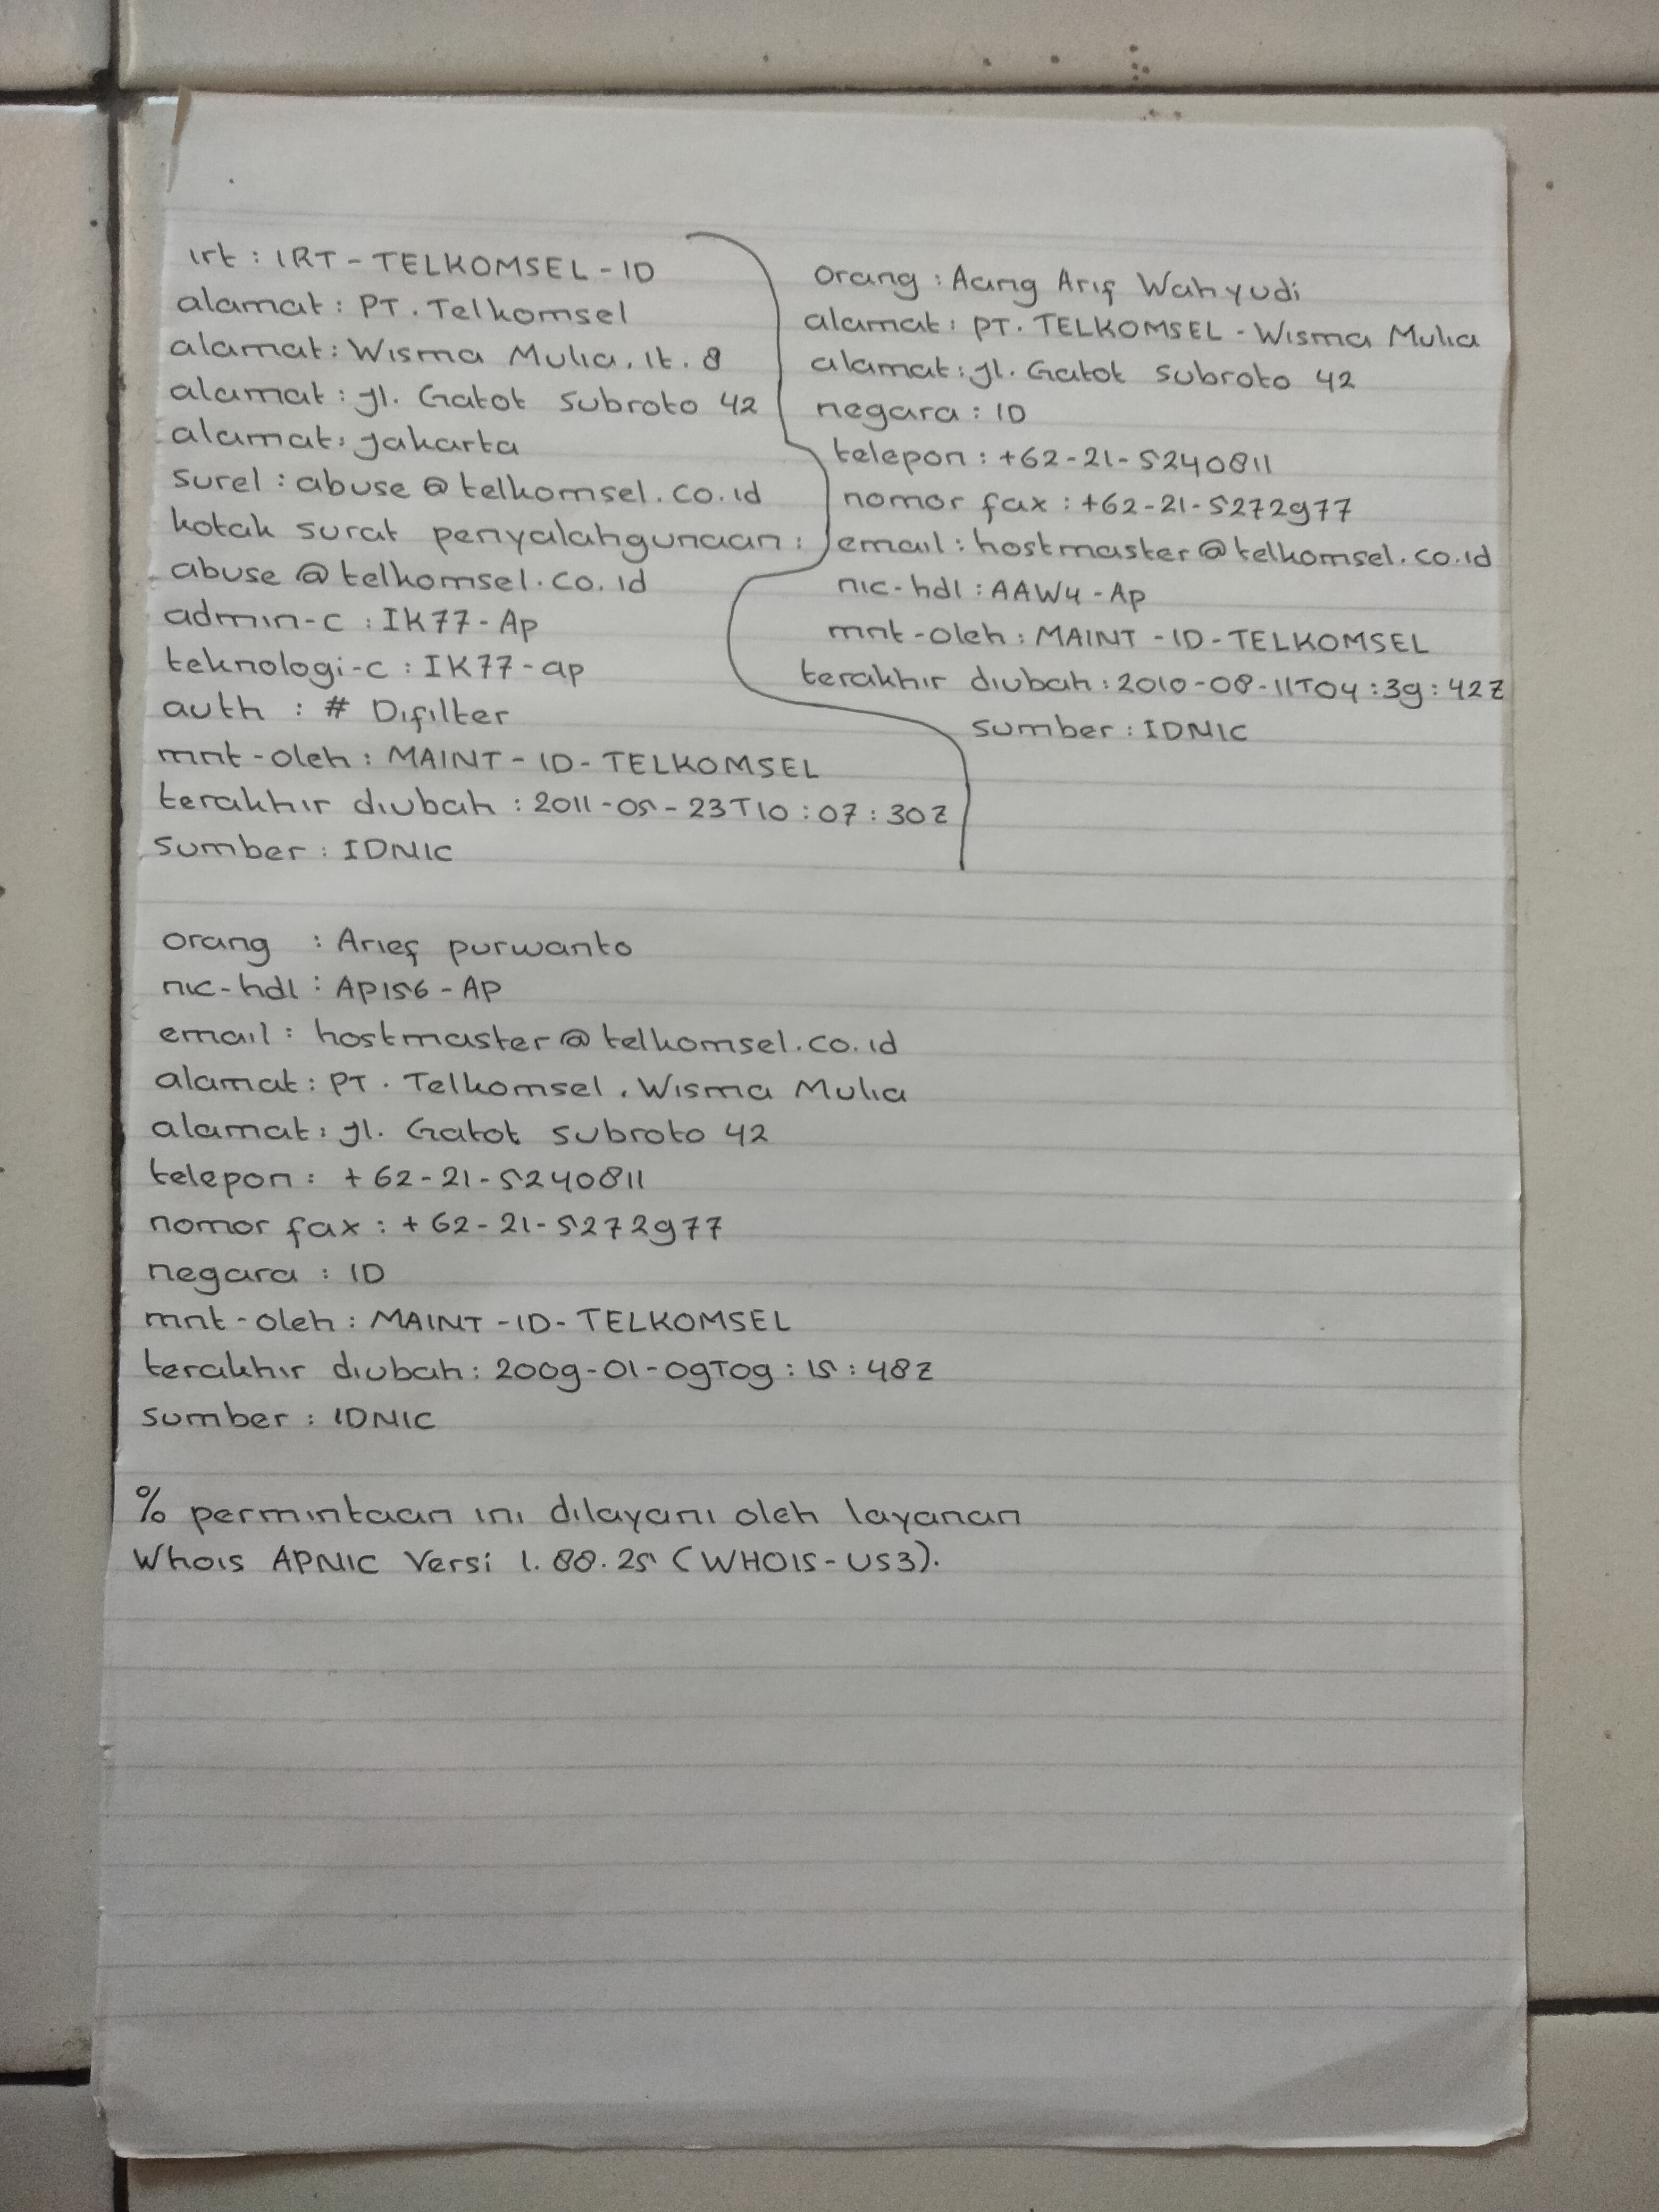 irt : IRT - TELKOMSEL - ID
alamat : PT. Telkomsel
alamat : Wisma Mulia, lt. 8
alamat : Jl. Gatot Subroto 42
alamat : Jakarta
surel : abuse @ telkomsel.co.id
kotak surat penyalahgunaan :
abuse @ telkomsel.co.id
admin-c : IK77-Ap
teknologi-c : IK77-ap
auth : # Difilter
mnt-oleh : MAINT - ID - TELKOMSEL
terakhir diubah : 2011-05-23T10:07:30Z
sumber : IDNIC
orang : Aang Arif Wahyudi
alamat : PT. TELKOMSEL - Wisma Mulia
alamat : Jl. Gatot Subroto 42
negara : ID
telepon : +62-21-5240811
nomor fax : +62-21-5272977
email : hostmaster@telkomsel.co.id
nic-hdl : AAW4-Ap
mnt-oleh : MAINT - ID - TELKOMSEL
terakhir diubah : 2010-08-11T04:39:42Z
sumber : IDNIC
orang : Arief purwanto
nic-hdl : AP156-AP
email : hostmaster@telkomsel.co.id
alamat : PT. Telkomsel, Wisma Mulia
alamat : Jl. Gatot Subroto 42
telepon : +62-21-5240811
nomor fax : +62-21-5272977
negara : ID
mnt-oleh : MAINT - ID - TELKOMSEL
terakhir diubah : 2009-01-09T09:15:48Z
sumber : IDNIC
% permintaan ini dilayani oleh layanan
Whois APNIC Versi 1.88.25 (WHOIS-US3).